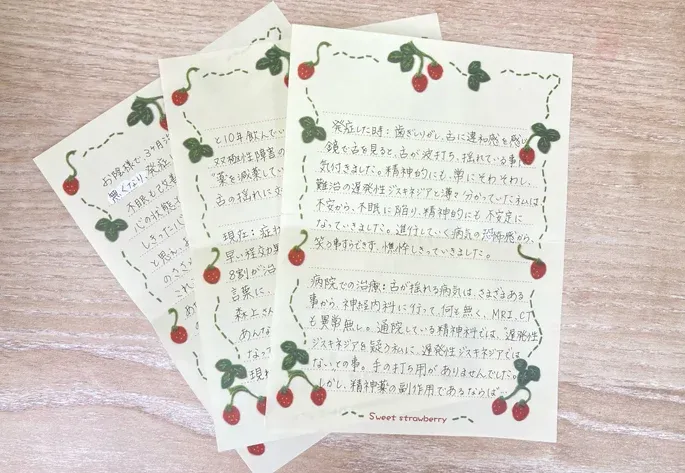 発症した時：歯ぎしりがし、舌に違和感を感じ
鏡で舌を見ると、舌が波打ち、揺れている事に
気付きました。精神的にも、常にそわそわし、
難治の遅発性ジスキネジアと薄々分かっていた私は
不安から、不眠に陥り、精神的にも不安定に
なっていきました。進行していく病気の恐怖感から、
笑う事すらできず、憔悴しきっていきました。
病院での治療：舌が揺れる病気は、さまざまある
事から、神経内科に行って、何も無く、MRI、CT
も異常無し。通院している精神科では、"遅発性
ジスキネジアを疑う私に、遅発性ジスキネジアでは
ないとの事。手の打ち用がありませんでした。
しかし、精神薬の副作用であるならば…
Sweet strawberry
と10年飲んでい
双極性障害の
"薬を減薬してい
舌の揺れに
現在：症
早い程効果
8割が治
言葉に、
森上さん
あんな
なって
現
お陰様で、3ヶ月
無くなり、発症
不眠も改善
心の状態
しまった
と思い、
のさ
これ
め